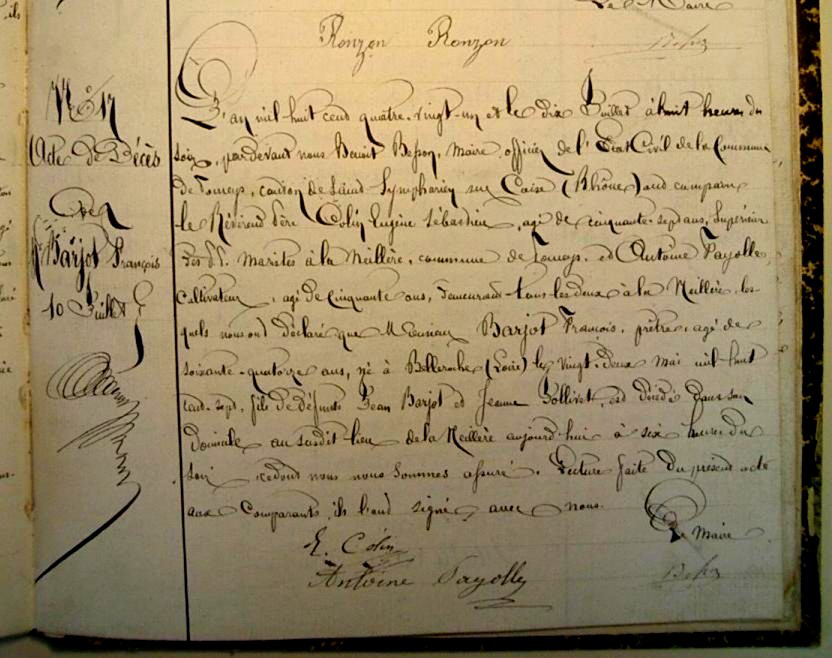 Le Maire
Ronzon Ronzon
Acte de Décès
de
Barjot François
10 Juillet
L'an mil huit cent quatre-vingt-un et le dix Juillet à huit heures du
soir, pardevant nous Benoît Besson, maire officier de l'Etat Civil de la Commune
de Pomeys, canton de Saint Symphorien sur Coise (Rhône) ont comparu
le Révérend Père Colin Eugène Sébastien, agé de cinquante-sept ans, Supérieur
des P.P. Maristes à la Neillère, commune de Pomeys, et Antoine Fayolle,
Cultivateur, agé de cinquante ans, demeurant tous les deux à la Neillère, les-
quels nous ont déclaré que Monsieur Barjot François, prêtre, agé de
soixante-quatorze ans, né à Belleroche (Loire) le vingt-deux mai mil huit
cent-sept, fils de défunts Jean Barjot et Jeanne Sollivet, est décédé dans son
Domicile au susdit lieu de la Neillère aujourd'hui à six heures du
soir, ce dont nous nous sommes assuré. Lecture faite du présent acte
aux Comparants, ils l'ont signé avec nous.
Le Maire
E. Colin
Antoine Fayolle